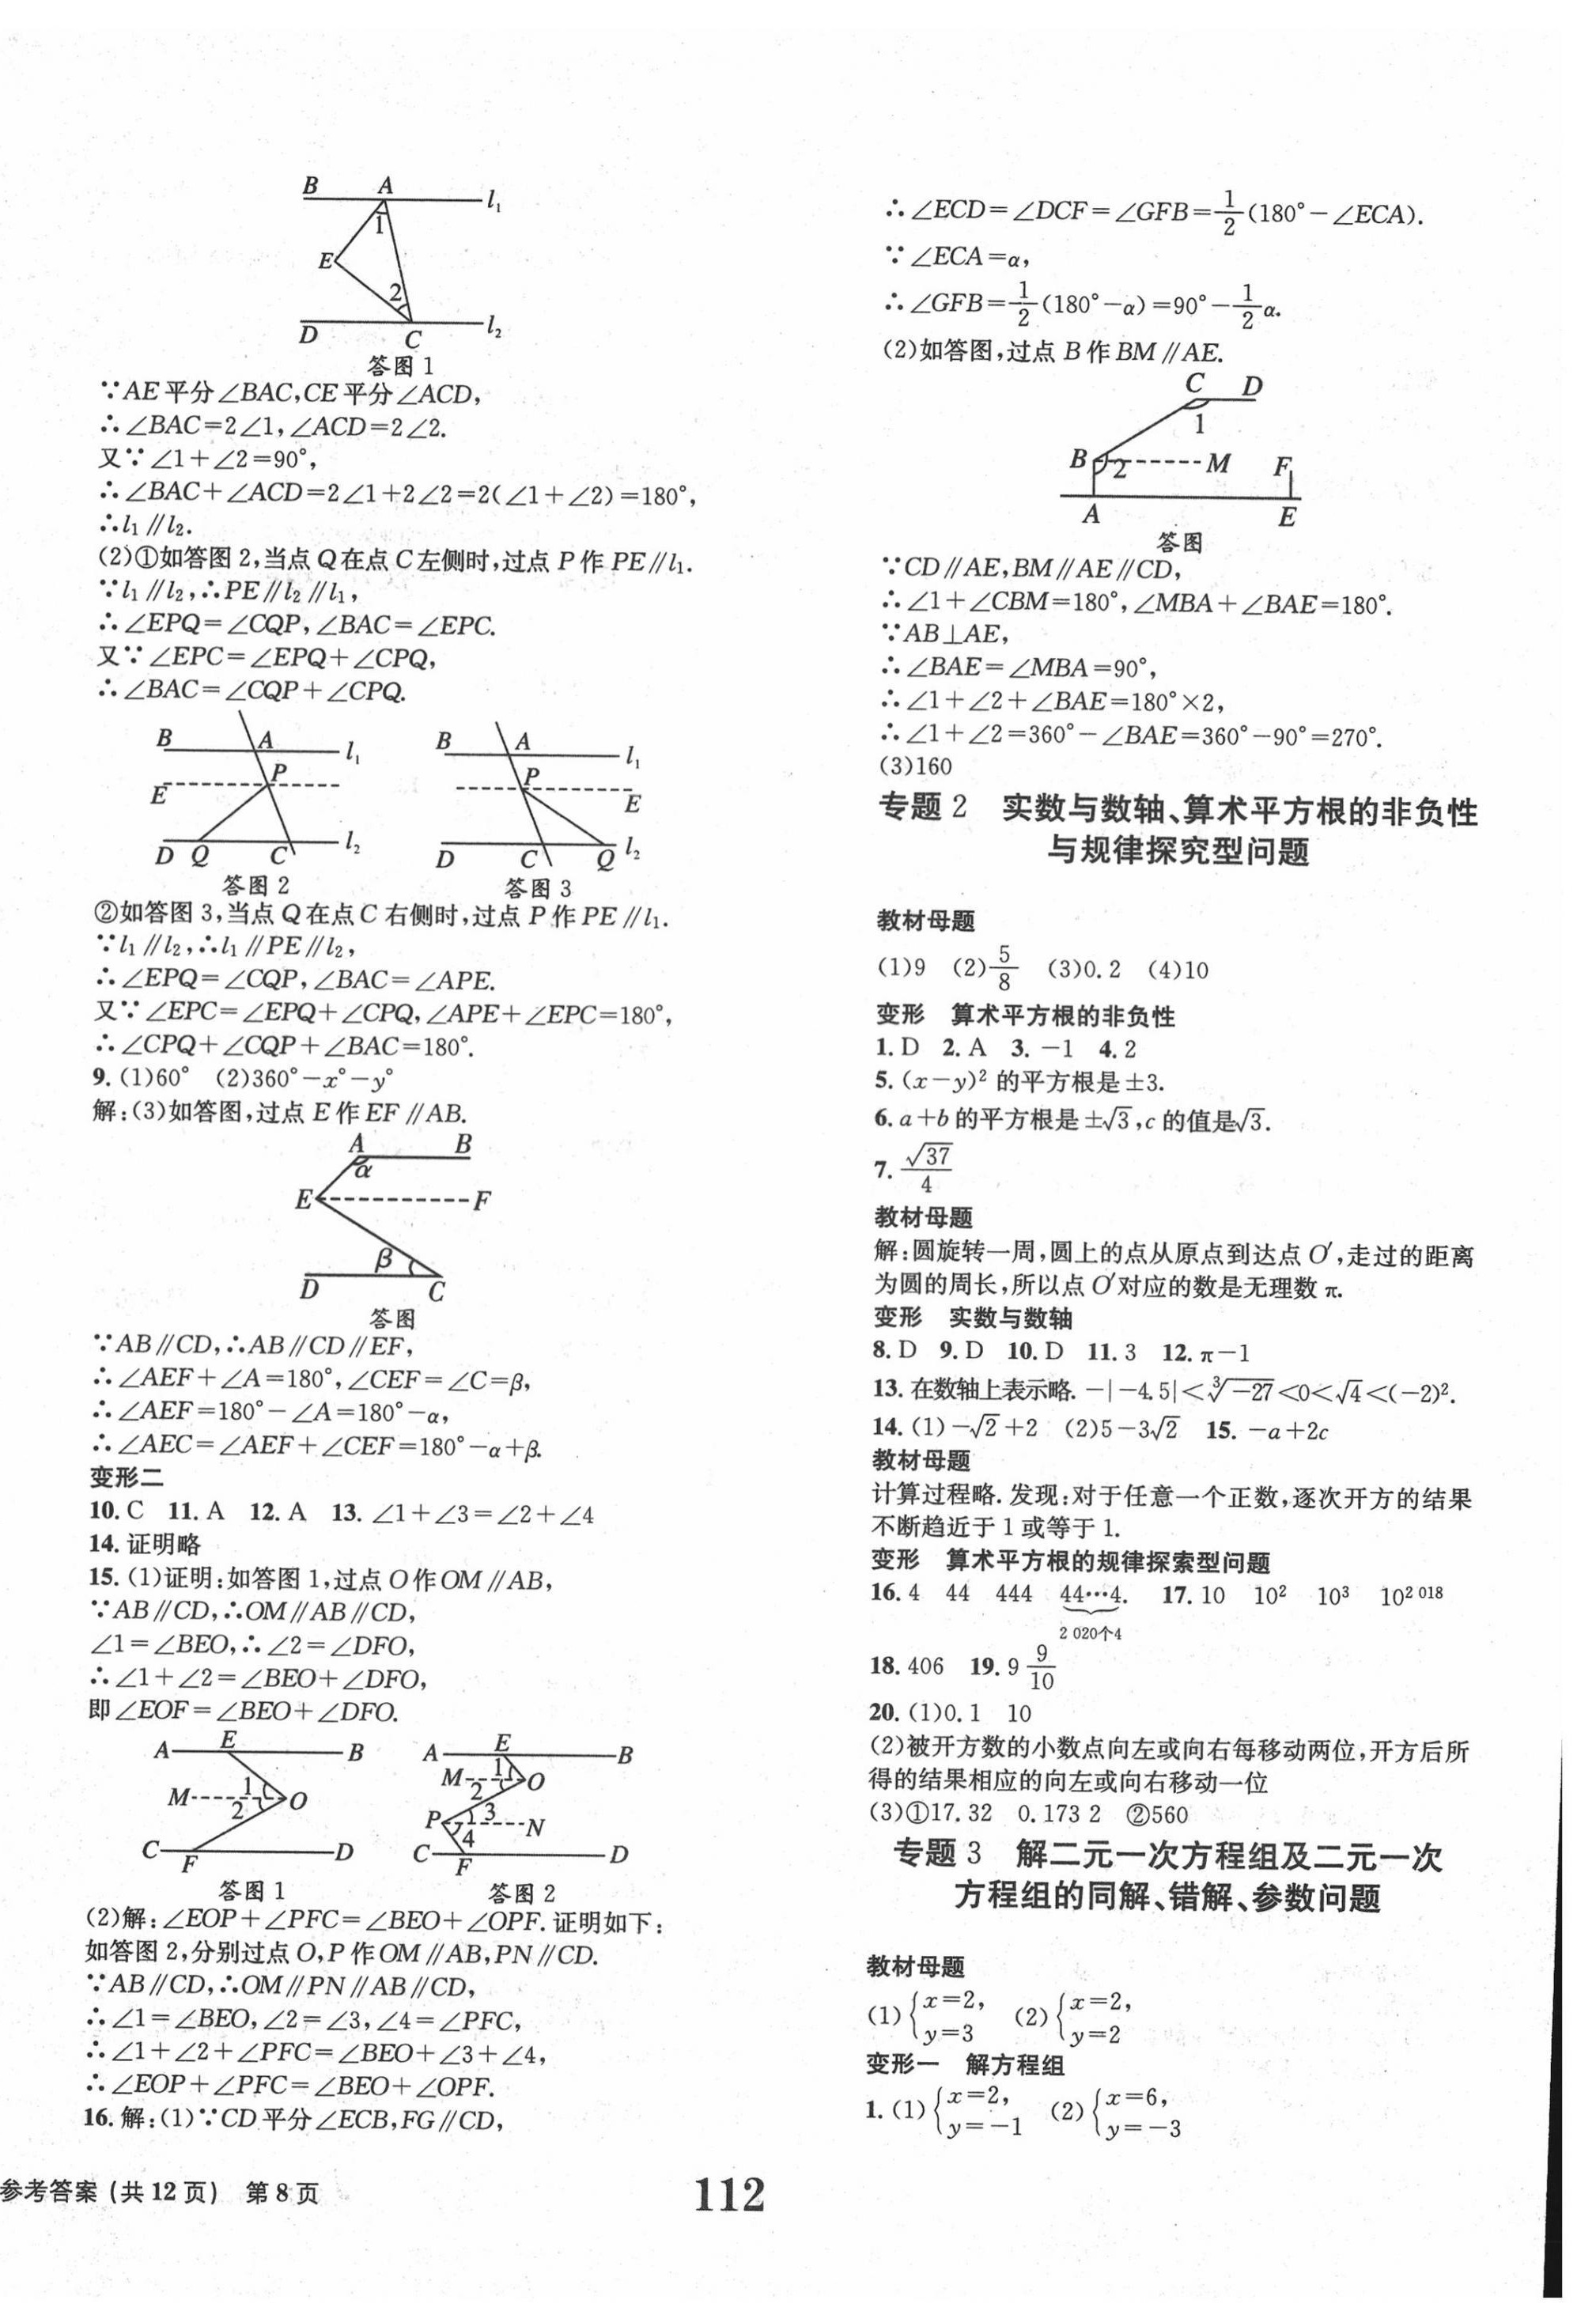 B A l₁
1
E
2
D C l₂
答图 1
∵AE平分∠BAC,CE平分∠ACD,
∴∠BAC=2∠1,∠ACD=2∠2.
又∵∠1+∠2=90°,
∴∠BAC+∠ACD=2∠1+2∠2=2(∠1+∠2)=180°,
∴l₁∥l₂.
(2)①如答图 2,当点 Q 在点 C 左侧时,过点 P 作 PE∥l₁.
∵l₁∥l₂,∴PE∥l₂∥l₁,
∴∠EPQ=∠CQP,∠BAC=∠EPC.
又∵∠EPC=∠EPQ+∠CPQ,
∴∠BAC=∠CQP+∠CPQ.
B A l₁ B A l₁
P P
E E
D Q C l₂ D C Q l₂
答图 2 答图 3
②如答图 3,当点 Q 在点 C 右侧时,过点 P 作 PE∥l₁.
∵l₁∥l₂,∴l₁∥PE∥l₂,
∴∠EPQ=∠CQP,∠BAC=∠APE.
又∵∠EPC=∠EPQ+∠CPQ,∠APE+∠EPC=180°,
∴∠CPQ+∠CQP+∠BAC=180°.
9. (1)60° (2)360°-x°-y°
解:(3)如答图,过点 E 作 EF∥AB.
A B
α
E F
β
D C
答图
∵AB∥CD,∴AB∥CD∥EF,
∴∠AEF+∠A=180°,∠CEF=∠C=β,
∴∠AEF=180°-∠A=180°-α,
∴∠AEC=∠AEF+∠CEF=180°-α+β.
变形二
10. C 11. A 12. A 13. ∠1+∠3=∠2+∠4
14. 证明略
15. (1)证明:如答图 1,过点 O 作 OM∥AB,
∵AB∥CD,∴OM∥AB∥CD,
∠1=∠BEO,∴∠2=∠DFO,
∴∠1+∠2=∠BEO+∠DFO,
即∠EOF=∠BEO+∠DFO.
A E B A E B
M 1 2 O M 1 2 O
P 3 4 N
C F D C F D
答图 1 答图 2
(2)解:∠EOP+∠PFC=∠BEO+∠OPF. 证明如下:
如答图 2,分别过点 O,P 作 OM∥AB,PN∥CD.
∵AB∥CD,∴OM∥PN∥AB∥CD,
∴∠1=∠BEO,∠2=∠3,∠4=∠PFC,
∴∠1+∠2+∠PFC=∠BEO+∠3+∠4,
∴∠EOP+∠PFC=∠BEO+∠OPF.
16. 解:(1)∵CD平分∠ECB,FG∥CD,
∴∠ECD=∠DCF=∠GFB=1/2(180°-∠ECA).
∵∠ECA=α,
∴∠GFB=1/2(180°-α)=90°-1/2α.
(2)如答图,过点 B 作 BM∥AE.
C D
1
B 2 M F
A E
答图
∵CD∥AE,BM∥AE∥CD,
∴∠1+∠CBM=180°,∠MBA+∠BAE=180°.
∵AB⊥AE,
∴∠BAE=∠MBA=90°,
∴∠1+∠2+∠BAE=180°×2,
∴∠1+∠2=360°-∠BAE=360°-90°=270°.
(3)160
专题 2 实数与数轴、算术平方根的非负性
与规律探究型问题
教材母题
(1)9 (2)5/8 (3)0.2 (4)10
变形 算术平方根的非负性
1. D 2. A 3. -1 4. 2
5. (x-y)² 的平方根是±3.
6. a+b 的平方根是±√3,c 的值是√3.
7. √37/4
教材母题
解:圆旋转一周,圆上的点从原点到达点 O′,走过的距离
为圆的周长,所以点 O′对应的数是无理数 π.
变形 实数与数轴
8. D 9. D 10. D 11. 3 12. π-1
13. 在数轴上表示略. -|-4.5|<∛-27<0<√4<(-2)².
14. (1)-√2+2 (2)5-3√2 15. -a+2c
教材母题
计算过程略. 发现:对于任意一个正数,逐次开方的结果
不断趋近于 1 或等于 1.
变形 算术平方根的规律探索型问题
16. 4 44 444 44…4. 17. 10 10² 10³ 10²⁰¹⁸
2 020个4
18. 406 19. 9 9/10
20. (1)0.1 10
(2)被开方数的小数点向左或向右每移动两位,开方后所
得的结果相应的向左或向右移动一位
(3)①17.32 0.173 2 ②560
专题 3 解二元一次方程组及二元一次
方程组的同解、错解、参数问题
教材母题
(1){x=2, y=3 (2){x=2, y=2
变形一 解方程组
1. (1){x=2, y=-1 (2){x=6, y=-3
参考答案(共 12 页) 第 8 页
112